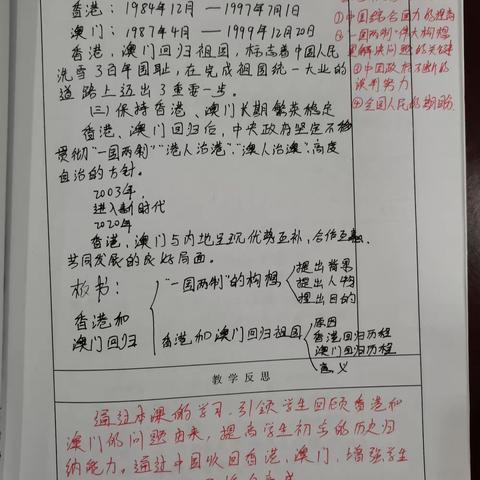 香港：1984年12月—1997年7月1日
澳门：1987年4月—1999年12月20日
香港，澳门回归祖国，标志着中国人民
洗雪了百年国耻，在完成祖国统一大业的
道路上迈出了重要一步。
(三)保持香港、澳门长期繁荣稳定
香港、澳门回归后，中央政府坚定不移
贯彻"一国两制""港人治港""澳人治澳"高度
自治的方针。
2003年，
进入新时代
2020年
香港、澳门与内地呈现优势互补，合作互赢，
共同发展的良好局面。
板书：
香港和
澳门回归
"一国两制"的构想
提出背景
提出人物
提出目的
香港和澳门回归祖国
原因
香港回归历程
澳门回归历程
意义
①中国综合国力的提高
②"一国两制"伟大构想
是解决问题的关键
③中国政府不断的
谈判努力
④全国人民的期盼
教学反思
通过本课的学习，引领学生回顾香港和
澳门的问题由来，提高学生初步的历史归
纳能力。通过中国收回香港、澳门，增强学生